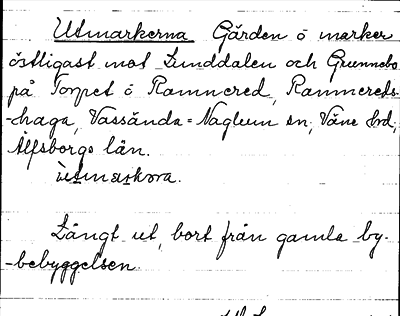 Utmarkerna Gården ö marker
östligast mot Lunddalen och Grunnebo
på Torpet ö Ramnered, Ramnereds-
-haga, Vassända=Naglum sn, Väne hd,
Älfsborgs län.
ùtmaʀkɒra.
Långt ut, bort från gamla by-
-bebyggelsen.